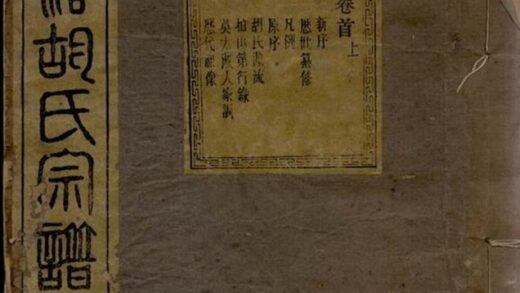 胡氏宗譜
卷首上
新序
歷世纂修
凡例
原序
胡氏源流
歷代祖像